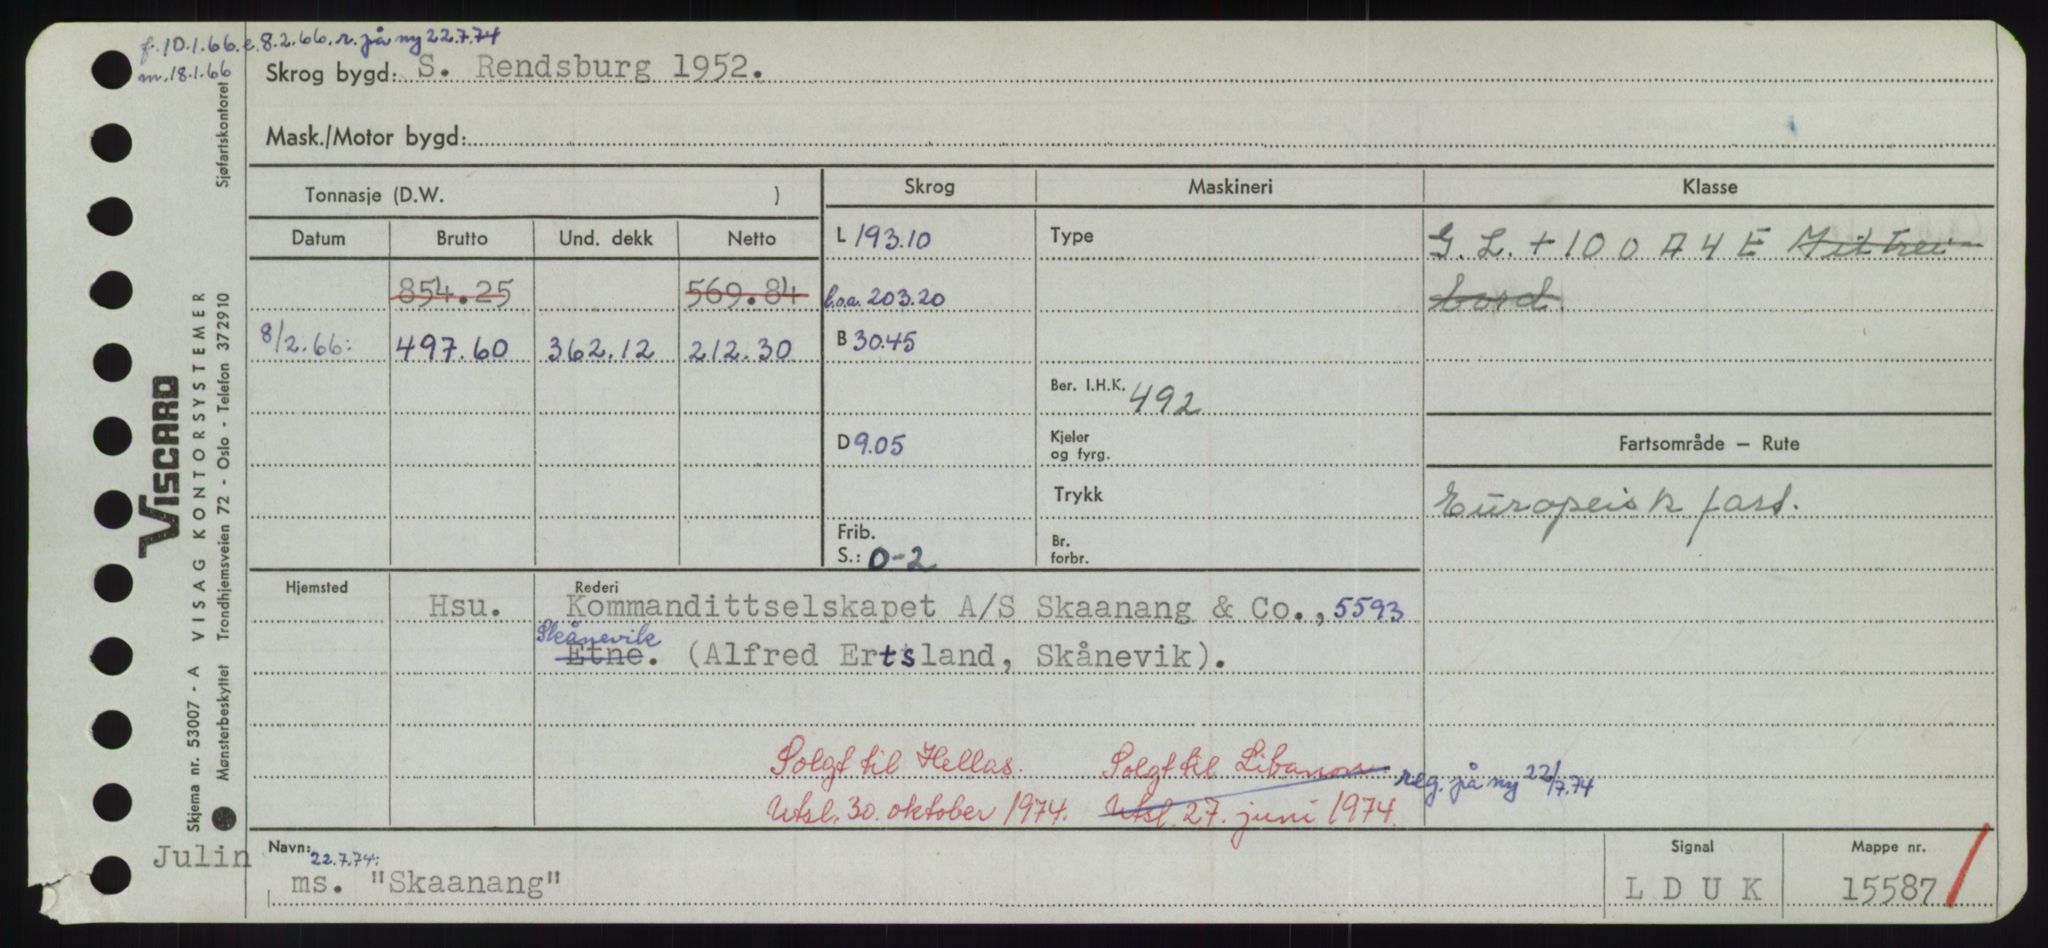 f. 10.1.66. e. 8.2.66. r. på ny 22.7.74
m. 18.1.66
Skrog bygd: S. Rendsburg 1952.
Mask./Motor bygd:
Tonnasje (D.W. )
Skrog
Maskineri
Klasse
Datum
Brutto
Und. dekk
Netto
L 193.10
Type
G. L. + 100 A 4 E Mit Frei-
854.25
569.84
l.o.a. 203.20
bord.
8/2.66:
497.60
362.12
212.30
B 30.45
Ber. I.H.K. 492
D 9.05
Kjeler
og fyrg.
Fartsområde – Rute
Trykk
Europeisk fart.
Frib.
S.: 0-2
Br.
forbr.
Hjemsted
Hsu.
Rederi
Kommandittselskapet A/S Skaanang & Co., 5593
Skånevik
Etne. (Alfred Ertsland, Skånevik).
Solgt til Hellas.
Utsl. 30. oktober 1974.
Solgt til Libanon
Utsl. 27. juni 1974.
reg. på ny 22/7.74
Julin
Navn: 22.7.74:
ms. "Skaanang"
Signal
L D U K
Mappe nr.
15587
Viscard
VISAG KONTORSYSTEMER
Skjema nr. 53007 - A
Mønsterbeskyttet Trondhjemsveien 72 - Oslo - Telefon 372910
Sjøfartskontoret